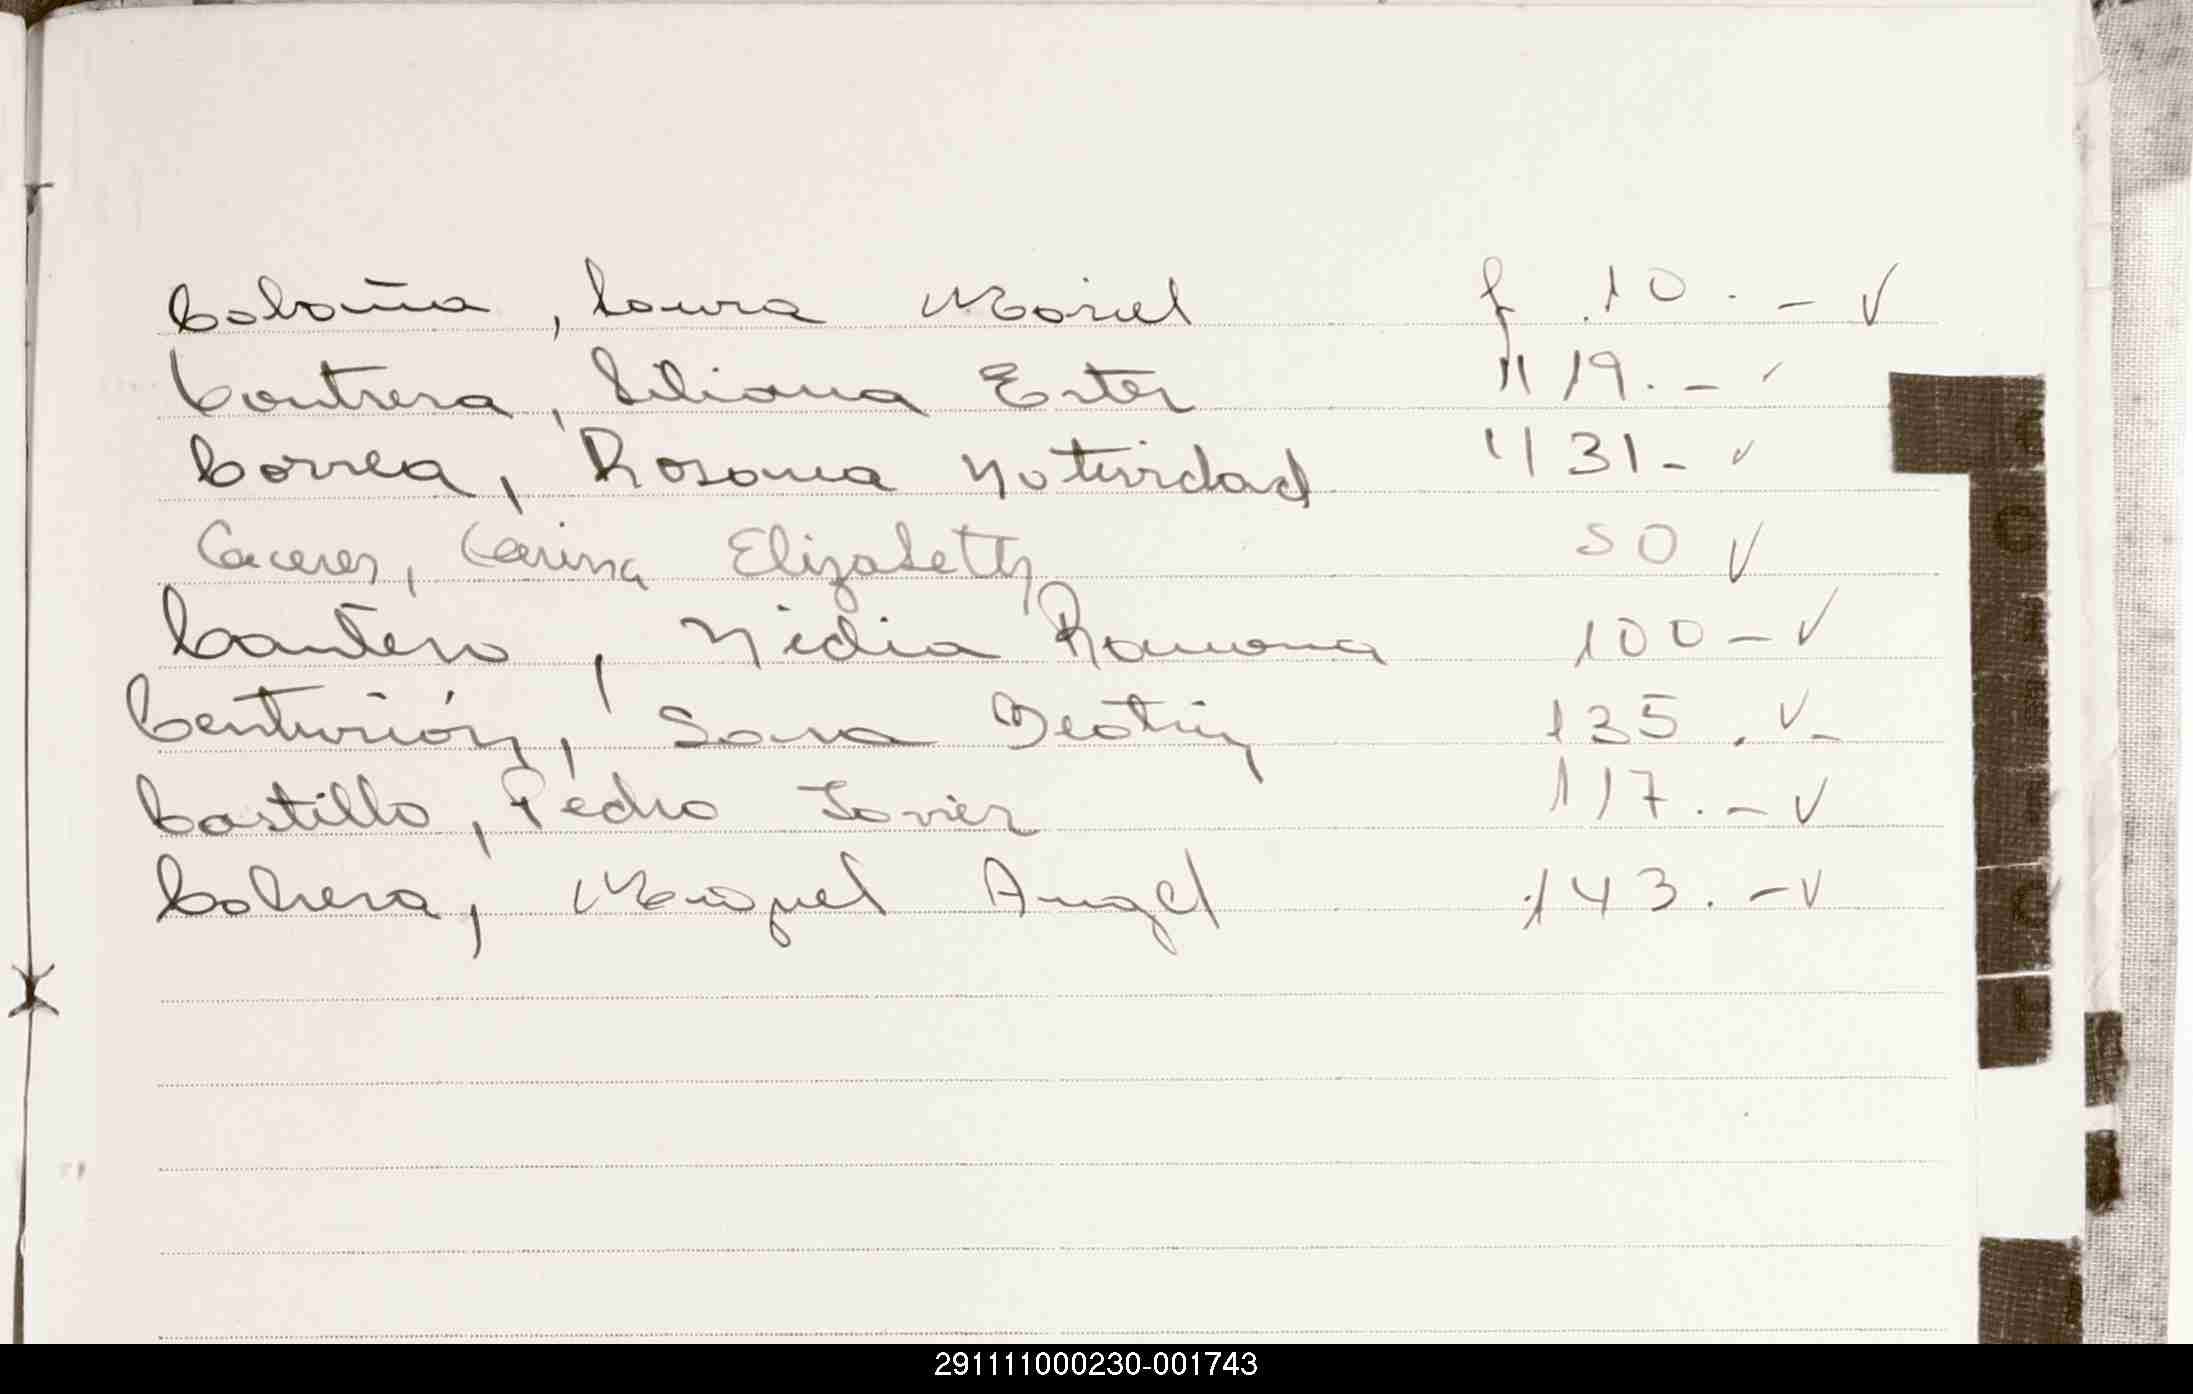 Cabaña, Laura Mariel f. 10. - √
Contrera, Liliana Ester " 19. - ✓
Correa, Rosana Natividad " 31 - √
Caceres, Carina Elizabeth 50 √
Cantero, Nidia Ramona 100 - √
Centurión, Sara Beatriz 135 . √ -
Castillo, Pedro Javier 117. - √
Cabrera, Miguel Angel 143. - √
291111000230-001743